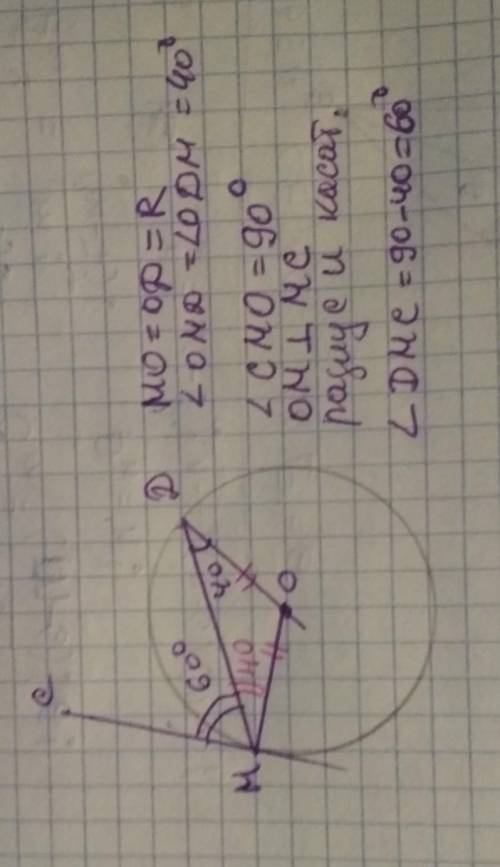 MO = OD = R
∠OMD = ∠ODM = 40°
∠CMO = 90°
OM ⊥ MC
радиус и касат.
∠DMC = 90-40=60°
C
D
60°
40
40
O
M